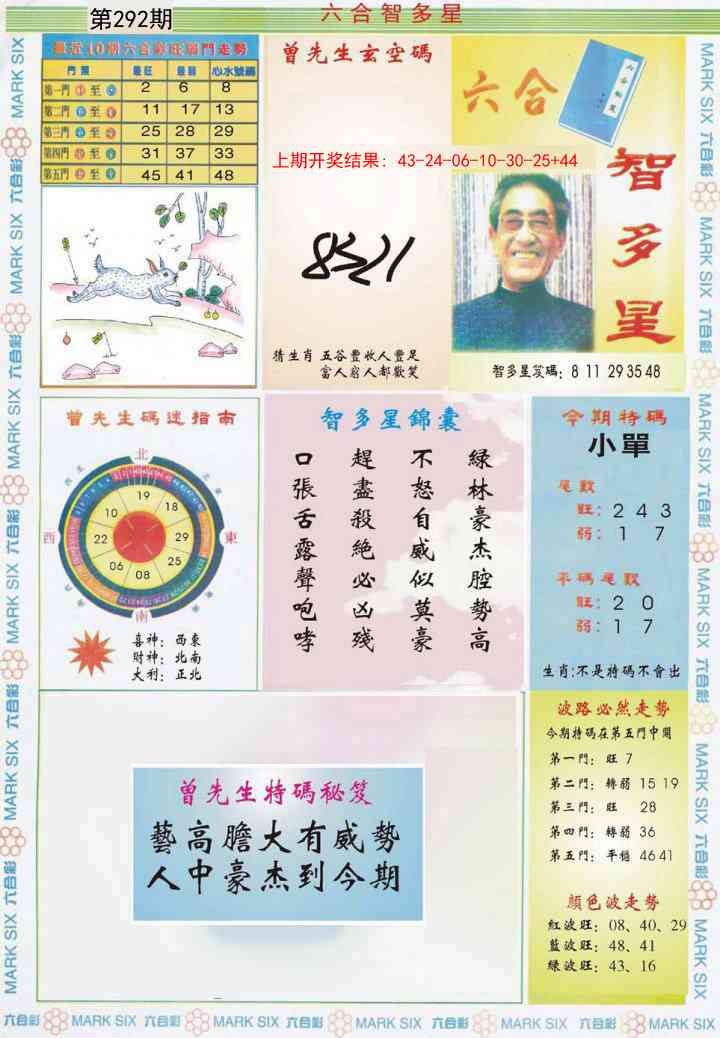 第292期
六合智多星
最近10期六合彩旺弱門走勢
門類 最旺 最弱 心水號碼
第一門 至 2 6 8
第二門 至 11 17 13
第三門 至 25 28 29
第四門 至 31 37 33
第五門 至 45 41 48
曾先生玄空碼
上期开奖结果：43-24-06-10-30-25+44
8321
猜生肖 五谷豐收人豐足
富人窮人都歡笑
六合
智多星
智多星笈碼：8 11 29 35 48
曾先生碼迷指南
北
西
東
南
19
18
29
25
08
06
22
10
喜神：西東
財神：北南
大利：正北
智多星錦囊
綠林豪杰腔勢高
不怒自威似莫豪
趕盡殺絕必凶殘
口張舌露聲咆哮
今期特碼
小單
尾數
旺：2 4 3
弱：1 7
平碼尾數
旺：2 0
弱：1 7
生肖:不是特碼不會出
曾先生特碼秘笈
藝高膽大有威勢
人中豪杰到今期
波路必然走勢
今期特碼在第五門中開
第一門：旺 7
第二門：轉弱 15 19
第三門：旺 28
第四門：轉弱 36
第五門：平穩 46 41
顏色波走勢
紅波旺：08、40、29
藍波旺：48、41
綠波旺：43、16
MARK SIX 六合彩